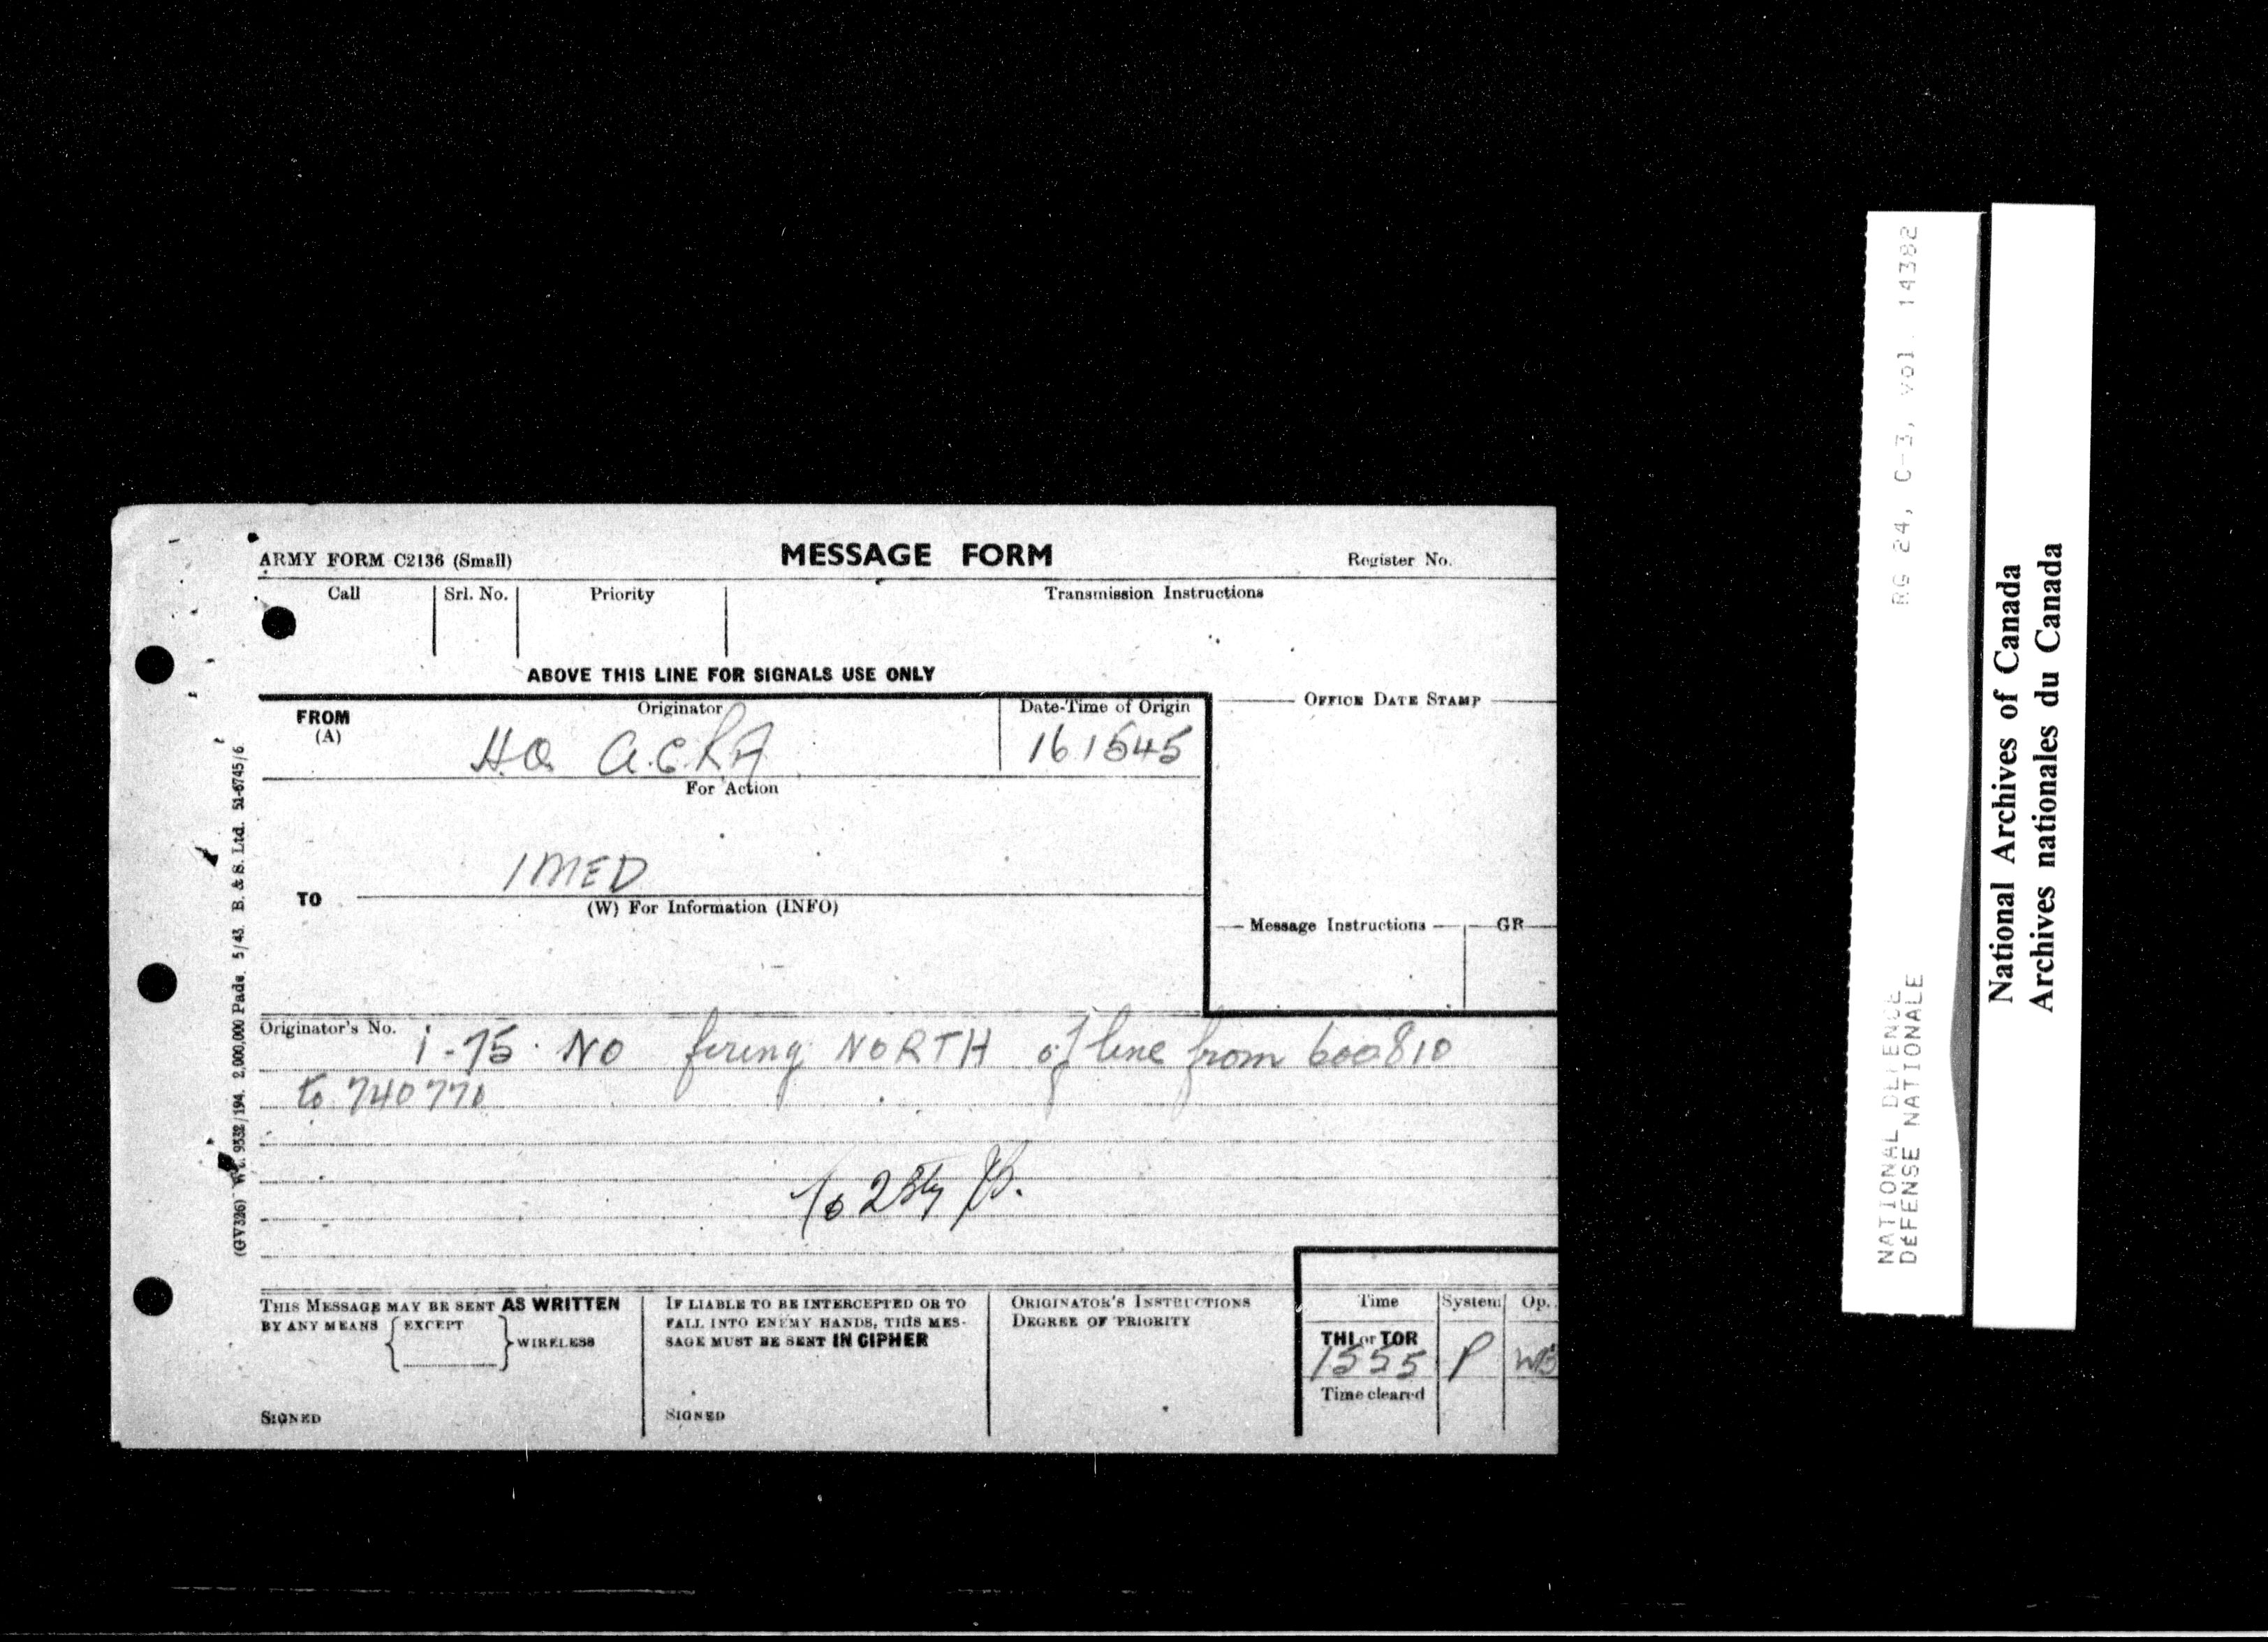 ARMY FORM C2136 (Small)
MESSAGE FORM
Register No.
Call Srl. No. Priority Transmission Instructions
ABOVE THIS LINE FOR SIGNALS USE ONLY
FROM
(A)
Originator
HQ A.C.R.A
Date-Time of Origin
161545
OFFICE DATE STAMP
For Action
1 MED
TO
(W) For Information (INFO)
Message Instructions GR
Originator's No. i-75. NO firing NORTH of line from 600810
to 740770
To 2
THIS MESSAGE MAY BE SENT AS WRITTEN
BY ANY MEANS { EXCEPT } WIRELESS
SIGNED
IF LIABLE TO BE INTERCEPTED OR TO
FALL INTO ENEMY HANDS, THIS MES-
SAGE MUST BE SENT IN CIPHER
SIGNED
ORIGINATOR'S INSTRUCTIONS
DEGREE OF PRIORITY
Time System Op.
THI or TOR
1555 P WB
Time cleared
(GV326) Wt. 9332/194. 2,000,000 Pads. 5/43. B. & S. Ltd. 51-6745/6
RG 24, C-3, vol. 14382
NATIONAL DEFENCE
DÉFENSE NATIONALE
National Archives of Canada
Archives nationales du Canada